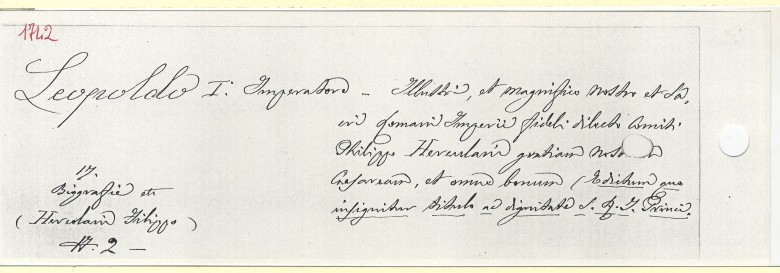 1742
Leopoldo I: Imperatore – Illustri, et magnifico nostro et Sa,
cri Romani Imperii fideli dilecto Comiti
Philippo Herculani gratiam
Cesaream, et omne bonum ( Edictum quo
insignitur titulo ac dignitate S. R. I. Princi.
17.
Biografie etc
( Herculani Filippo )
N. 2 –